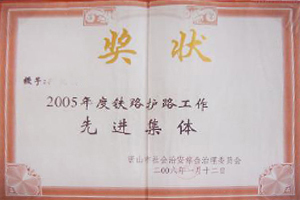 奖状
授予
2005年度铁路护路工作
先进集体
唐山市社会治安综合治理委员会
二00六年一月十二日